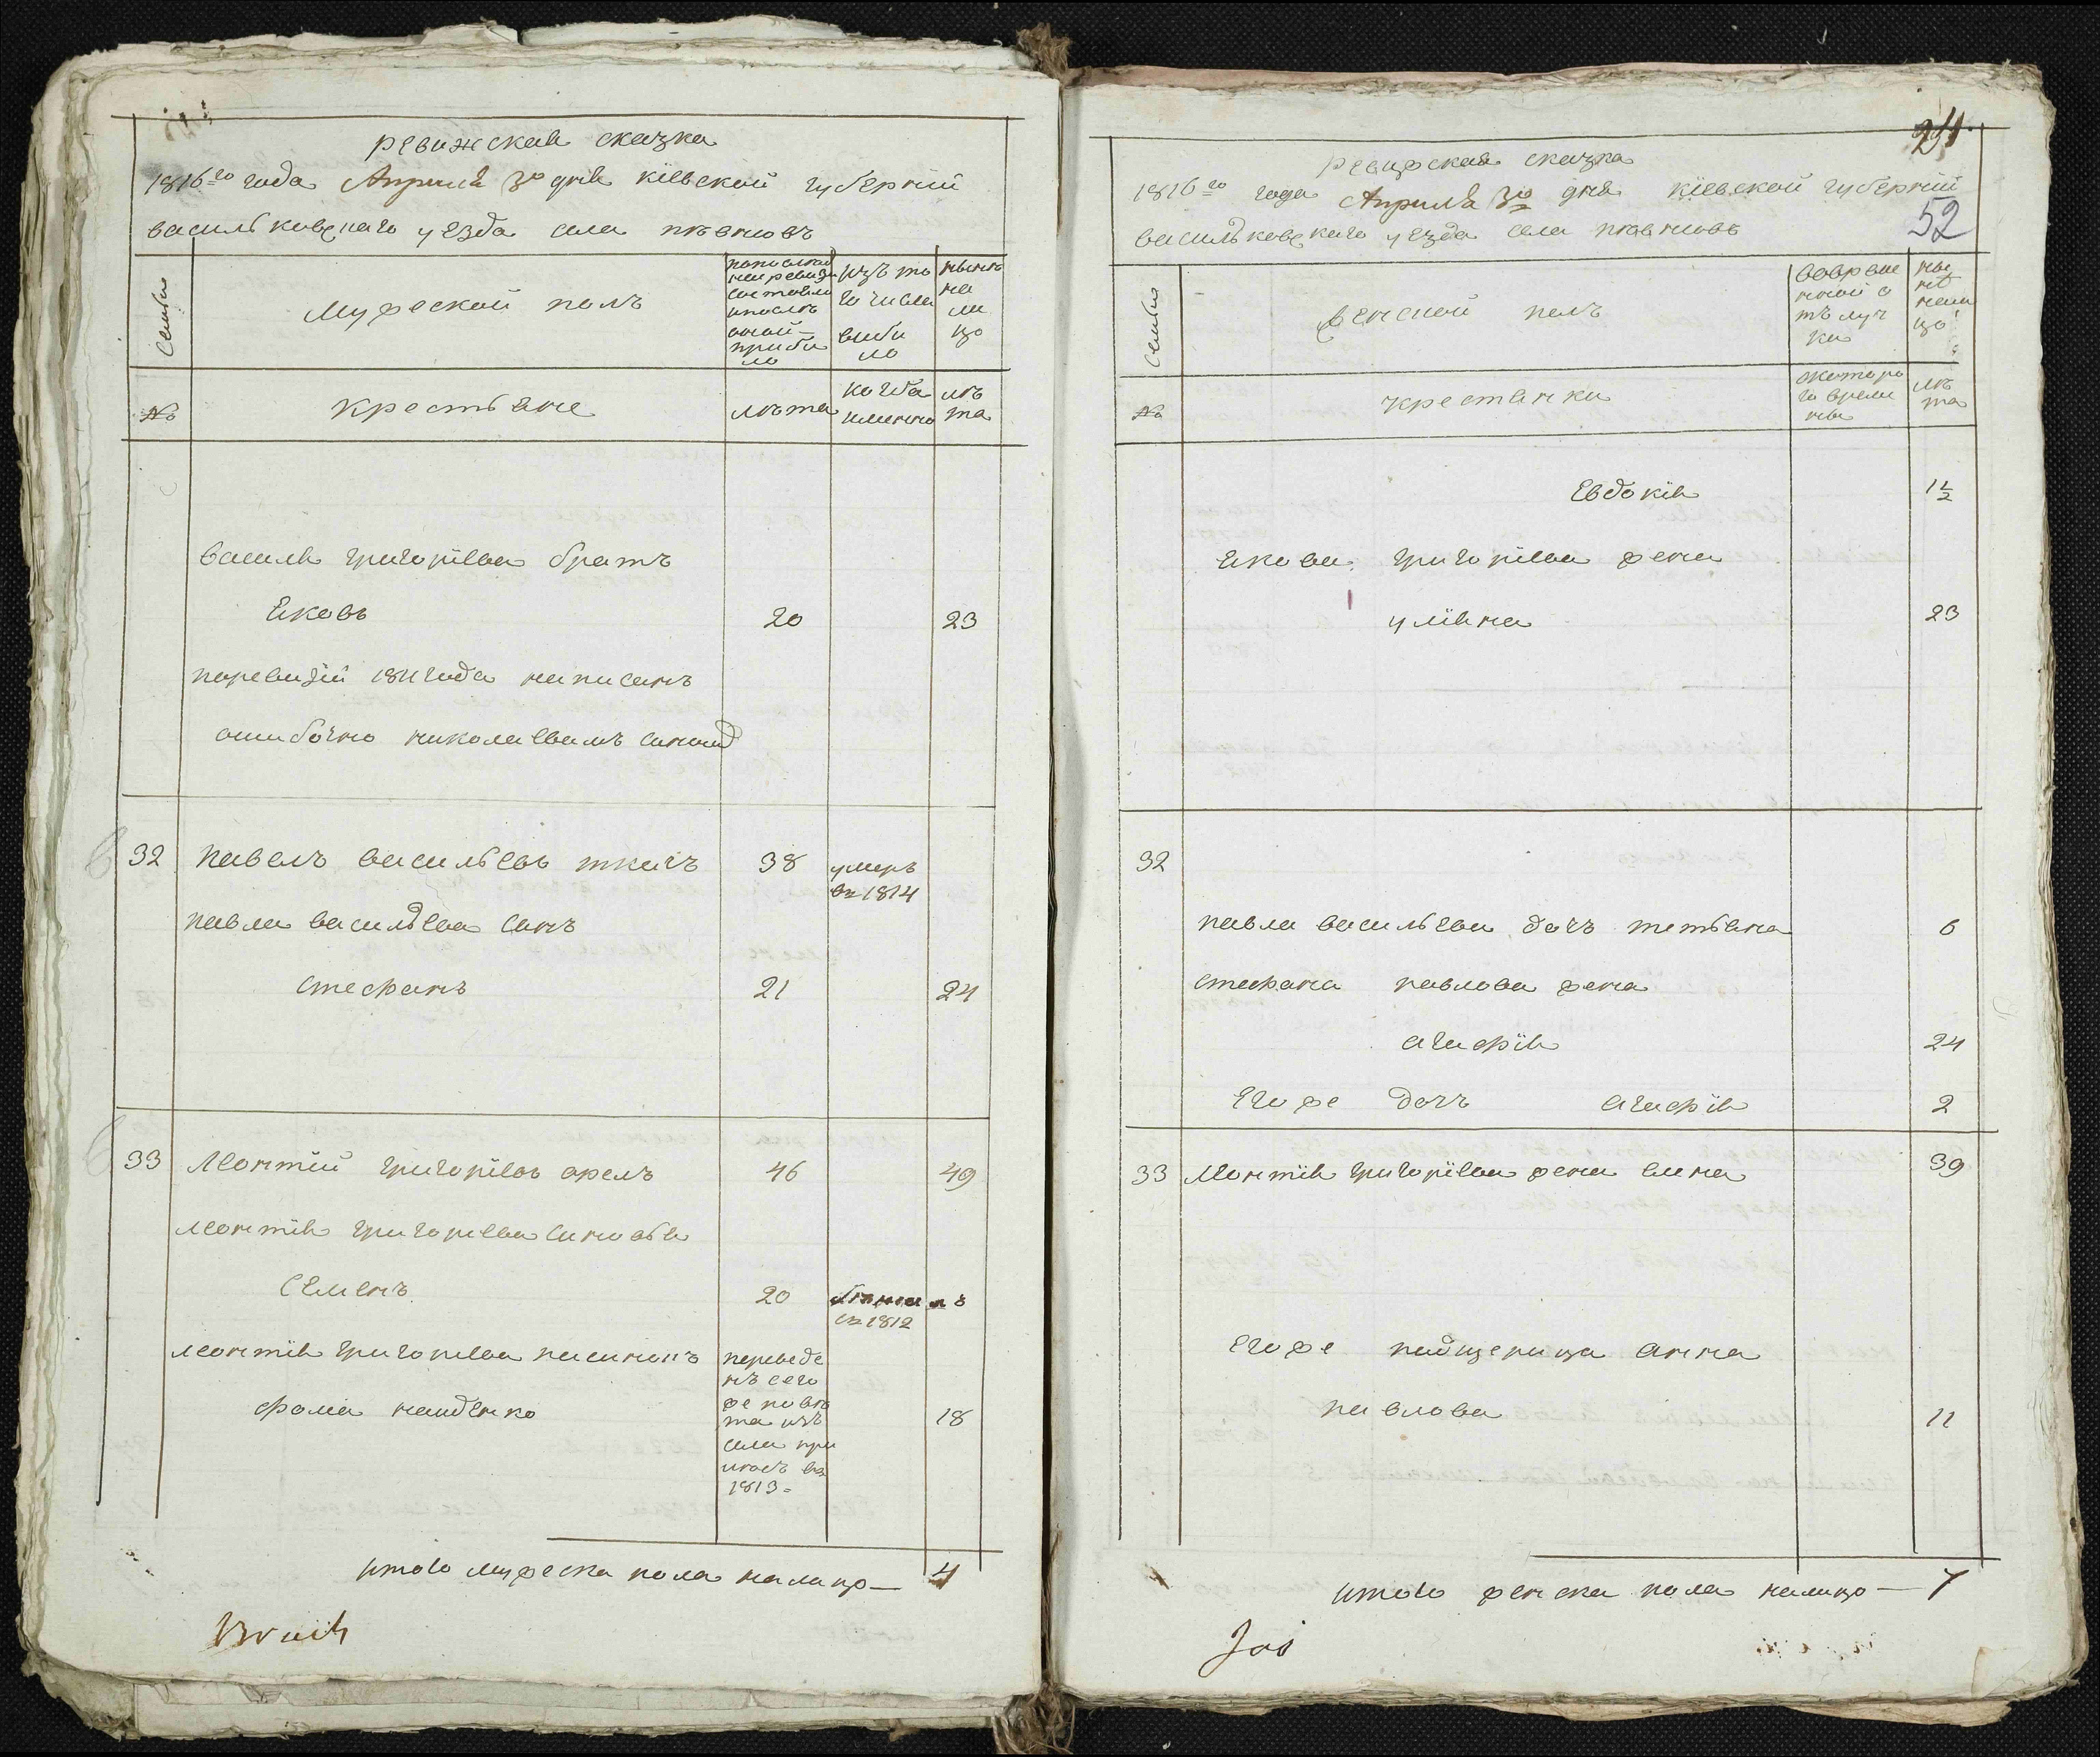 ревижская сказка
1816го года Апреля 30 дня кіевской губерніи
васильковскаго уезда села
Семьи
Мужеской полъ
по последней ревизіи состояло и после оной прибыло
изъ того числа выбыло
ныне на лицо
№
крестьяне
лѣта
когда именно
лѣта
василя григоріева братъ
яковъ 20 23
поревизіи 1811 года написанъ
ошибочно николаевымъ сыномъ
32 павелъ васильевъ ткачъ 38 умеръ
въ 1814
павла васильева сынъ
стефанъ 21 24
33 леонтій григоріевъ орелъ 46 49
леонтія григориева сыновья
семенъ 20
въ 1812
леонтія григориева пасынокъ переведе
нъ сего
фома найденко же повѣ 18
та изъ
села
въ
1813
итого мужеска пола налицо — 4
24
52
ревижская сказка
1816го года Апреля 30 дня кіевской губерніи
васильковскаго уезда села
Семьи
женской полъ
во временной отлучки
ныне налицо
№
крестянки
с котораго времени
лѣта
Евдокія 1½
якова григоріева жена
уліяна 23
32
павла васильева дочъ тетьяна 6
стефана павлова жена
агафія 24
Егоже дочъ агафія 2
33 леонтія григоріева жена елена 39
егоже падщерица анна
павлова 11
итого женска пола налицо — 7